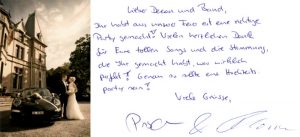 Liebe Deean und Bernd,
Ihr habt aus unsrer Feier eine richtige
Party gemacht! Vielen herzlichen Dank
für Eure tollen Songs und die Stimmung,
die Ihr gemacht habt, war wirklich
perfekt! Genau so sollte eine Hochzeits-
party sein!
Viele Grüsse,
&